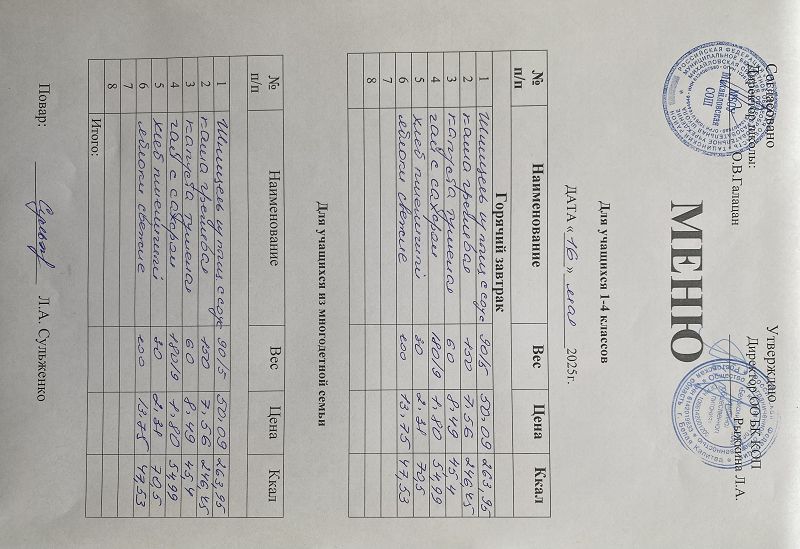 Согласовано
Директор школы:
О.В.Галацан
Утверждаю
Директор ОО БК КОП
Рыжкина Л.А.
МЕНЮ
Для учащихся 1-4 классов
ДАТА « 16 » мая 2025г.
№ п/п Наименование Вес Цена Ккал
Горячий завтрак
1 90/5 50,09 263,95
2 каша гречневая 150 7,56 246,45
3 капуста тушеная 60 8,49 45,4
4 чай с сахаром 180/9 1,80 54,99
5 хлеб пшеничный 30 2,38 70,5
6 яблоки свежие 100 13,75 47,53
7
8
Для учащихся из многодетной семьи
№ п/п Наименование Вес Цена Ккал
1 90/5 50,09 263,95
2 каша гречневая 150 7,56 246,45
3 капуста тушеная 60 8,49 45,4
4 чай с сахаром 180/9 1,80 54,99
5 хлеб пшеничный 30 2,38 70,5
6 яблоки свежие 100 13,75 47,53
7
8
Итого:
Повар: Л.А. Сульженко